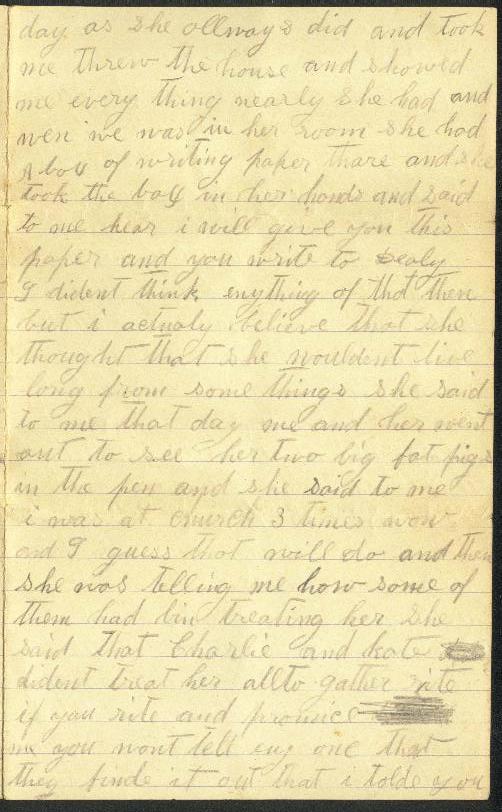 day as she ollways did and took
me threw the house and showed
me every thing nearly she had and
wen we was in her room she had
A box of writing paper thare and she
took the box in her hands and said
to me hear i will give you this
paper and you write to Sealy
I dident think enything of that then
but i actualy believe that she
thought that she wouldent live
long from some things she said
to me that day me and her went
out to see her two big fat pigs
in the pen and she said to me
i was at church 3 times now
and I guess that will do and then
she was telling me how some of
them had bin treating her she
said that Charlie and kate
dident treat her allto gather rite
if you rite and promice
me you wont tell eny one that
they finde it out that i tolde you